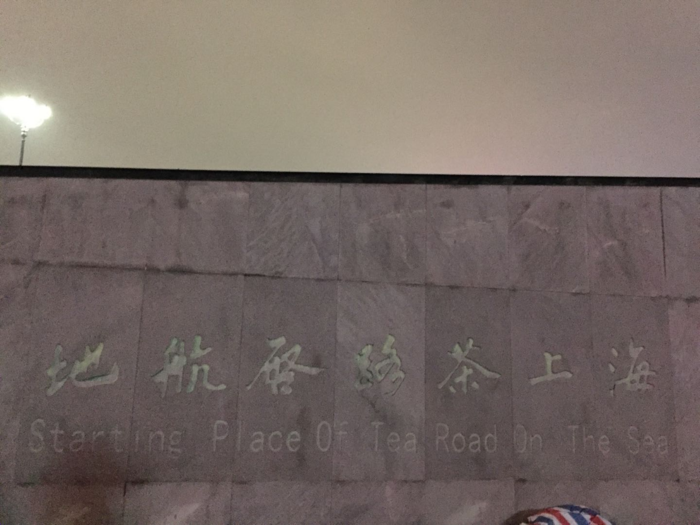 海上茶路啓航地
Starting Place Of Tea Road On The Sea